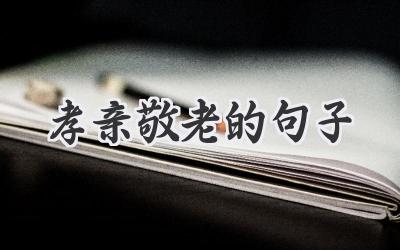 孝亲敬老的句子